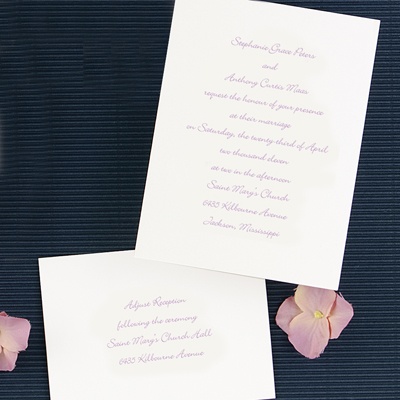 Stephanie Grace Peters
and
Anthony Curtis Matis
request the honour of your presence
at their marriage
on Saturday, the twenty-third of April
two thousand eleven
at two in the afternoon
Saint Mary's Church
6483 Kilbourne Avenue
Jackson, Mississippi
Adjust Reception
following the ceremony
Saint Mary's Church Hall
6483 Kilbourne Avenue